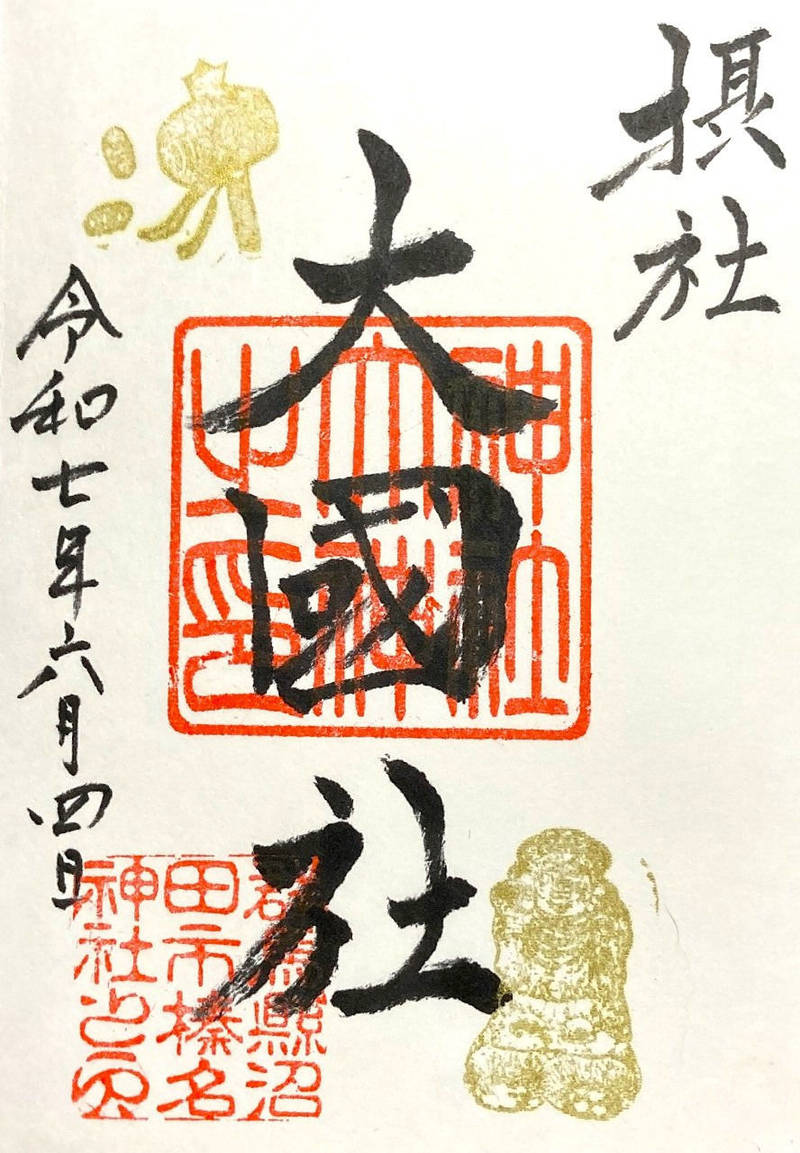 摂社
大國社
令和七年六月四日
群馬縣沼
田市榛名
神社之印